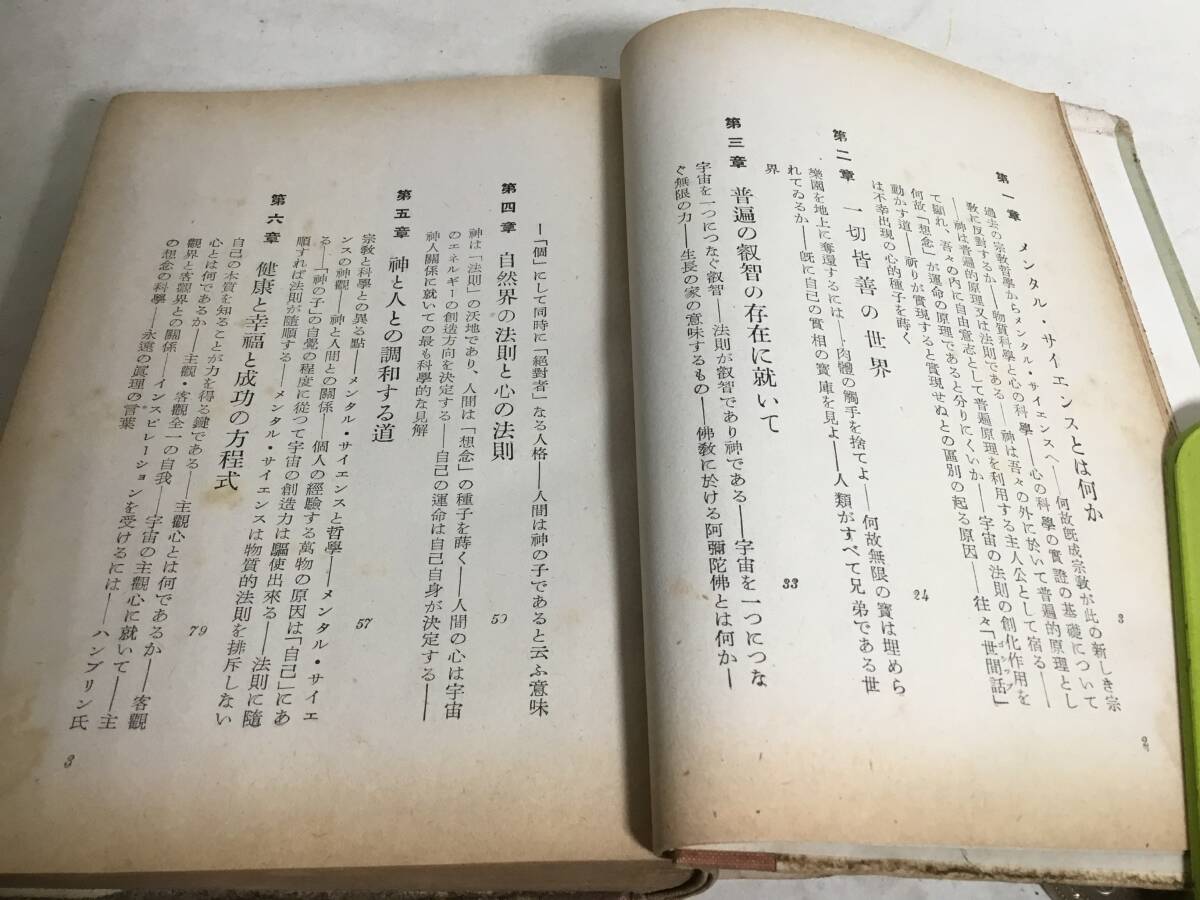 第一章 メンタル・サイエンスとは何か
3
過去の宗教哲學からメンタル・サイエンスへ――何故旣成宗教が此の新しき宗
教に反對するか――物質科學と心の科學――心の科學の實證の基礎について
――神は普遍的原理又は法則である――神は吾々の外に於いて普遍的原理とし
て顯れ、吾々の內に自由意志として宿る――普遍原理を利用する主人公として
何故「想念」が運命の原理であると分りにくいか――宇宙の法則の創化作用を
動かす道――祈りが實現すると實現せぬとの區別の起る原因――往々「世間話」
ゴシップ
は不幸出現の心的種子を蒔く
第二章 一切皆善の世界
24
樂園を地上に奪還するには――肉體の觸手を捨てよ――何故無限の寶は埋めら
れてゐるか――旣に自己の實相の寶庫を見よ――人類がすべて兄弟である世
界
第三章 普遍の叡智の存在に就いて
33
宇宙を一つにつなぐ叡智――法則が叡智であり神である――宇宙を一つにつな
ぐ無限の力――生長の家の意味するもの――佛教に於ける阿彌陀佛とは何か―
2
―「個」にして同時に「絕對者」なる人格――人間は神の子であると云ふ意味
第四章 自然界の法則と心の法則
50
神は「法則」の天地であり、人間は「想念」の種子を蒔く――人間の心は宇宙
のエネルギーの創造方向を決定する――自己の運命は自己自身が決定する――
神人關係に就いての最も科學的な見解
第五章 神と人との調和する道
57
宗教と科學との異る點――メンタル・サイエンスと哲學――メンタル・サイエ
ンスの神觀――神と人間との關係――個人の經驗する萬物の原因は「自己」にあ
る――「神の子」の自覺の程度に從つて宇宙の創造力は驅使出來る――法則に隨
順すれば法則が隨順する――メンタル・サイエンスは物質的法則を排斥しない
第六章 健康と幸福と成功の方程式
79
自己の本質を知ることが力を得る鍵である――主觀心とは何であるか――客觀
心とは何であるか――主觀・客觀全一の自我――宇宙の主觀心に就いて――主
觀界と客觀界との關係――インスピレーションを受けるには――ハンブリン氏
の想念の科學――永遠の眞理の言葉
3